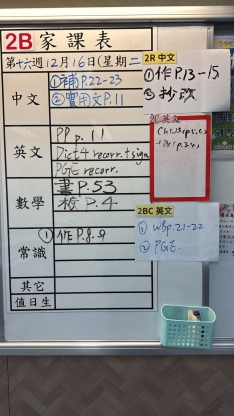 2B 家課表
第十六週12月16日(星期二
中文
①補P.22-23
②實用文P.11
英文
PP p. 11
Dict4 recorr. + sign
PGE recorr.
數學
書P.53
板P.4
常識
①作P.8-9
其它
值日生
2R 中文
①作P.13-15
②抄改
2C 英文
2BC 英文
① WBp.21-22
② PGE.